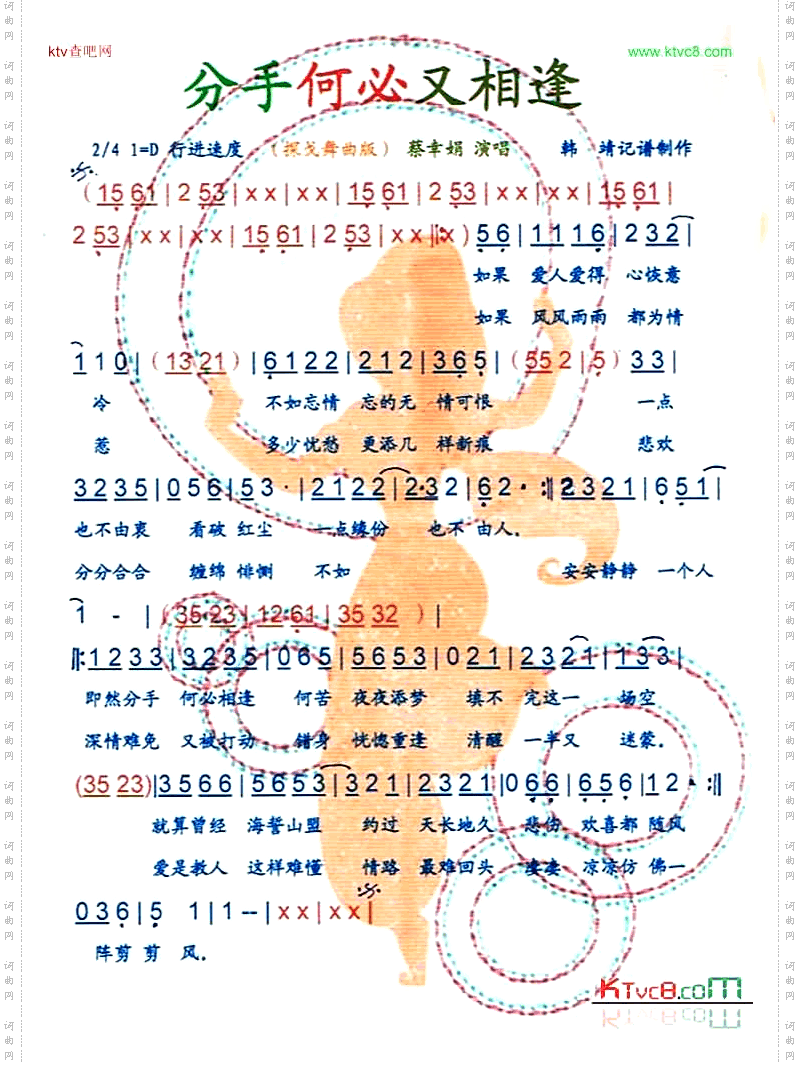 ktv查吧网
www.ktvc8.com
分手何必又相逢
2/4 1=D 行进速度 （探戈舞曲版） 蔡幸娟 演唱 韩 靖记谱制作
（15 61 | 2 53 | x x | x x | 15 61 | 2 53 | x x | x x | 15 61 |
2 53 | x x | x x | 15 61 | 2 53 | x x ‖: x ) 5 6 | 1 1 1 6 | 2 3 2 |
如果 爱人爱得 心恢意
如果 风风雨雨 都为情
1 1 0 |（13 21）| 6 1 2 2 | 2 1 2 | 3 6 5 |（55 2 | 5）3 3 |
冷 不如忘情 忘的无 情可恨 一点
惹 多少忧愁 更添几 样新痕 悲欢
3 2 3 5 | 0 5 6 | 5 3 · | 2 1 2 2 | 2·3 2 | 6 2 · :‖ 2 3 2 1 | 6 5 1 |
也不由衷 看破 红尘 一点缘份 也不 由人.
分分合合 缠绵 悱恻 不如 安安静静 一个人
1 - |（35 23 | 12 61 | 35 32 ）|
‖: 1 2 3 3 | 3 2 3 5 | 0 6 5 | 5 6 5 3 | 0 2 1 | 2 3 2 1 | 1 3 3 |
即然分手 何必相逢 何苦 夜夜添梦 填不 完这一 场空
深情难免 又被打动 错身 恍惚重逢 清醒 一半又 迷蒙.
(35 23)| 3 5 6 6 | 5 6 5 3 | 3 2 1 | 2 3 2 1 | 0 6 6 | 6 5 6 | 1 2 · :‖
就算曾经 海誓山盟 约过 天长地久 悲伤 欢喜都 随风
爱是教人 这样难懂 情路 最难回头 凄凄 凉凉仿 佛一
0 3 6 | 5 1 | 1 -- | x x | x x |
阵剪 剪 风.
KTvc8.com